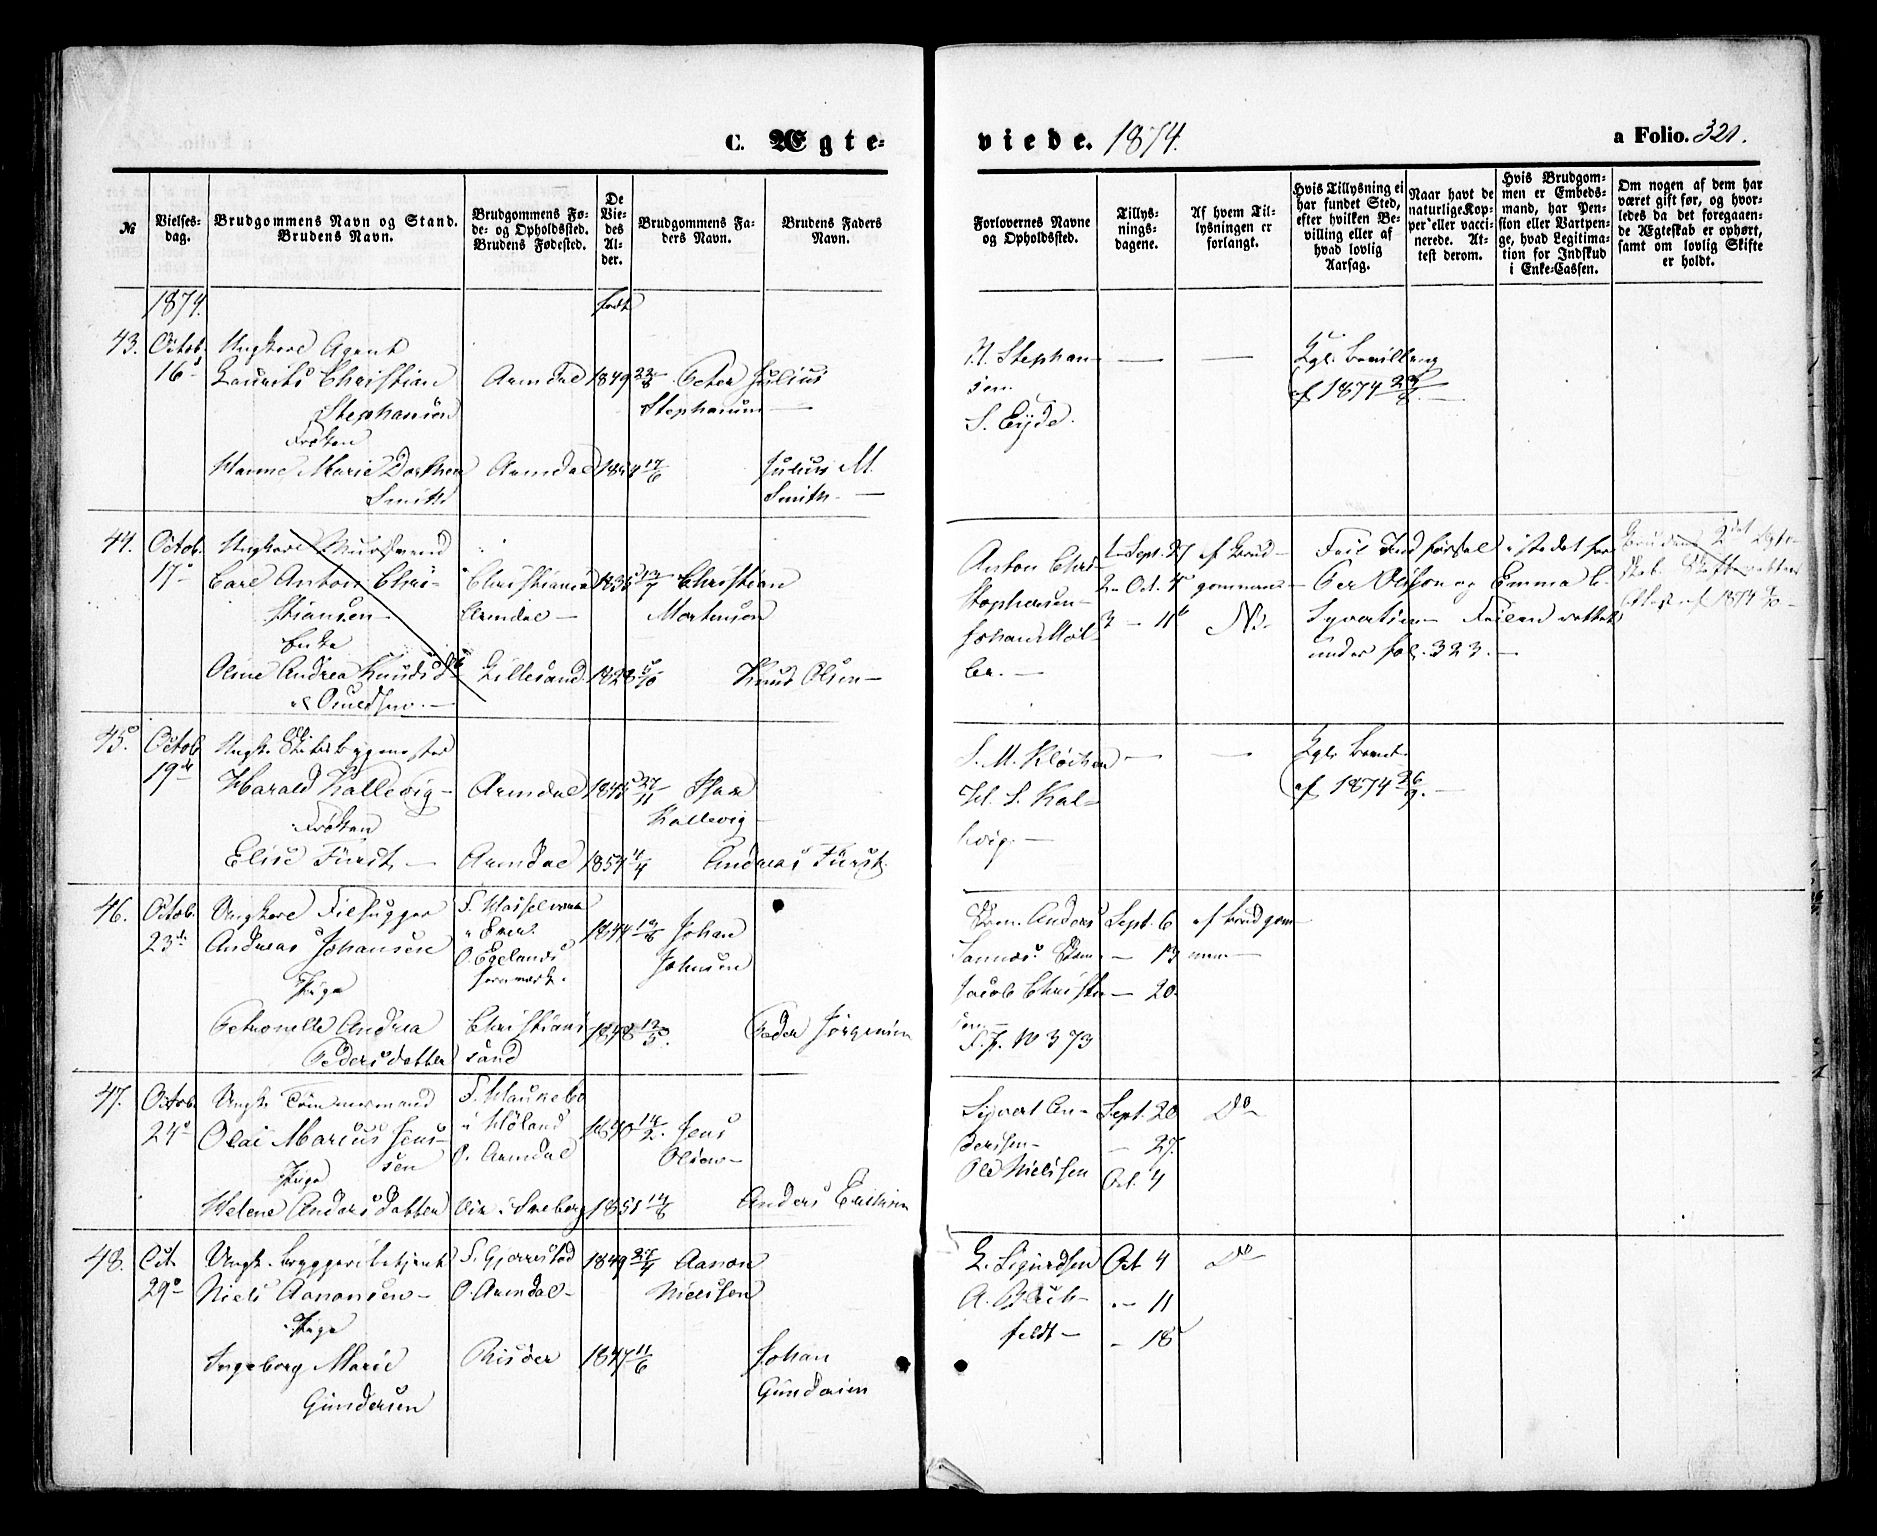 C. Ægte- viede. 1874. a Folio. 321.
№
Vielses-
dag.
Brudgommens Navn og Stand.
Brudens Navn.
Brudgommens Fø-
de- og Opholdssted.
Brudens Fødested.
De
Vie-
des
Al-
der.
Brudgommens Fa-
ders Navn.
Brudens Faders
Navn.
Forlovernes Navne
og Opholdssted.
Tillys-
nings-
dagene.
Af hvem Til-
lysningen er
forlangt.
Hvis Tillysning ei
har fundet Sted,
efter hvilken Be-
villing eller af
hvad lovlig
Aarsag.
Naar havt de
naturlige Kop-
per eller vacci-
nerede. At-
test derom.
Hvis Brudgom-
men er Embeds-
mand, har Pen-
sion eller Vartpen-
ge, hvad Legitima-
tion for Indskud
i Enke-Cassen.
Om nogen af dem har
været gift før, og hvor-
ledes da det foregaaen-
de Ægteskab er ophørt,
samt om lovlig Skifte
er holdt.
1874. født
43. Octob.
16
Ungkarl Agent
Laurits Christian
Stephansen
Frøken
Hanne Marie Dorthea
Smith
Arendal
Arendal
1849 23/8
1854 17/6
Peter Julius
Stephansen —
Julius M.
Smith —
H. Stephan-
sen.
S. Eyde.
— —
Kgl. Bevilling
af 1874
44. Octob.
17
Ungkarl Murmand
Carl Anton Chri-
stiansen
Enke
Oline Andrea Knudsd
Christiania
Arendal —
Lillesand
1835
1828
Christian
Mortensen
Knud Olsen —
Anton Chri
stophersen —
Johan Møl-
ler. —
1 — Sept. 27
2 — Oct. 4
3 — 11
af Brud-
gommen —
Feil Indførsel istedet for
Per Olsson og Emma C.
Syvertsen — Feilen rettet
under fol. 323. —
Brudens 2det Ægte-
skab
af 1874
45. Octob.
19de
Ungk. Skibsbygmester
Harald Kallevig —
Frøken
Elise Fürst —
Arendal
Arendal
1845 27/11
1854 4/4
Isax
Kallevig —
Andreas Fürst.
S. M. Kløcker
H. S. Kal-
lvig. —
— —
Kgl. Bevil.
af 1874 26/9. —
46. Octob.
23de
Ungkarl Filhugger
Andreas Johansen
Pige
Petronelle Andrea
Pedersdatter
F. Hasselverk
O. Egelands
Jernverk.
Christians
sand
1844
1848 12/5.
Johan
Johnsen
Peder Jørgensen
Anders
Jacob Christen
sen —
F. P. N 373
Sept. 6
— 13
— 20
af Brudgom-
men —
47. Octob.
24
Ungk. Tømmermand
Olai Marius Jens-
sen
Pige
Helene Andersdatter
i Høland
O. Arendal
1840 14/2.
1851 14/8
Jens
Olsen —
Anders
Sigvart An-
dersen —
Ole Nielsen
Sept. 20
— 27.
Oct. 4
Do
48. Oct.
29
Ungk. Bryggeribetjent
Niels Aanonsen —
Pige
Ingeborg Marie
Gundersen
F. Gjerrestad
O. Arendal —
Risøer
1849 27/4
1847 11/6
Aanon
Nielsen
Johan
Gundersen
L. Sigurdsen
A. Blich-
feldt —
Oct 4
— 11
— 18
Do